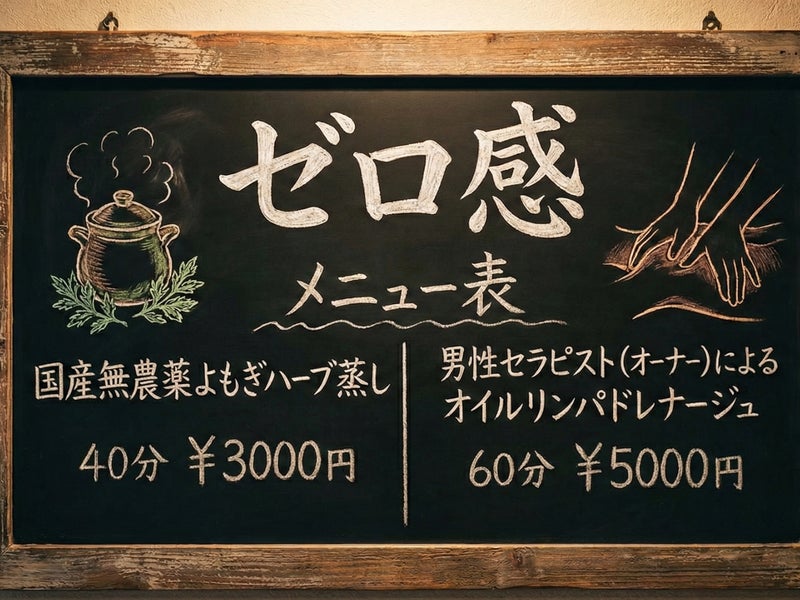 ゼロ感
メニュー表
国産無農薬よもぎハーブ蒸し
40分 ¥3000円
男性セラピスト(オーナー)による
オイルリンパドレナージュ
60分 ¥5000円